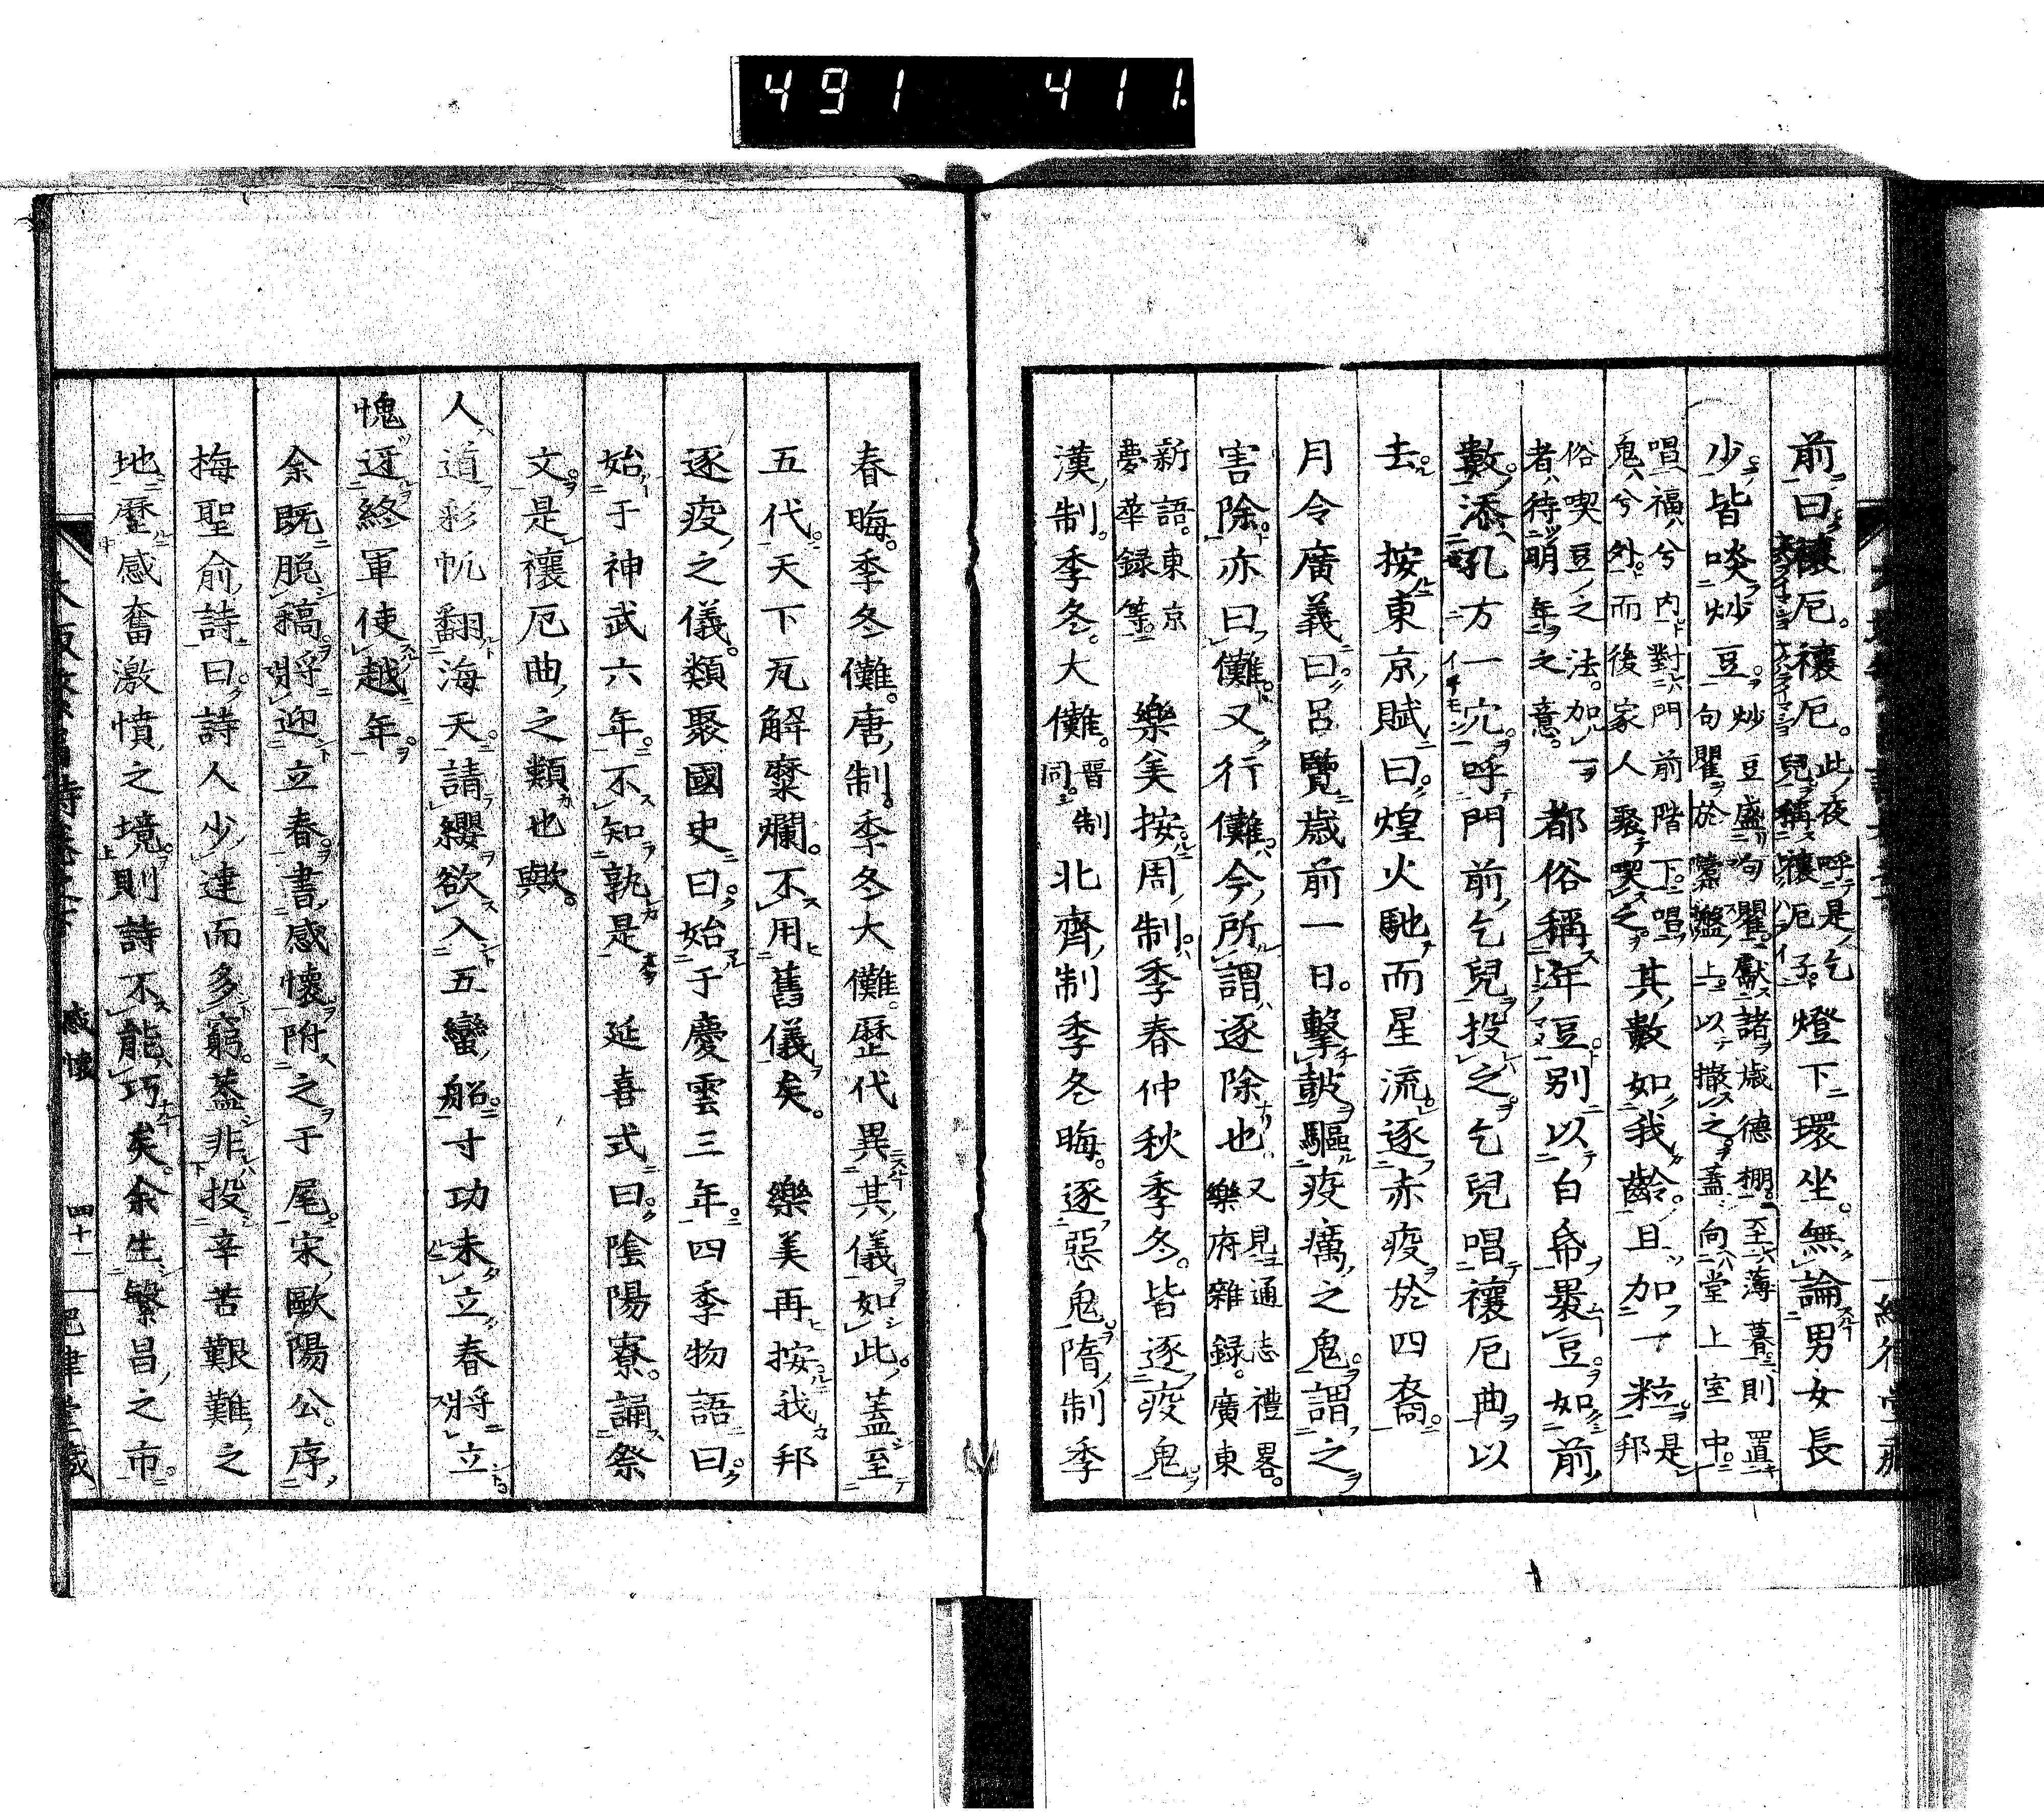 491 411.
前曰禳厄。禳厄。此夜呼是乞
兒稱禳厄子。燈下環坐。無論男女長
少皆啖炒豆。炒豆盛句瞿。獻諸歳德棚。至薄暮則置
句瞿於盤上。以撒之。蓋向堂上室中。
唱福兮内對門前階下。唱
鬼兮外。而後家人聚喫之。其數如我齡。且加一粒。是
邦
俗喫豆之法。加一
者待明年之意。都俗稱年豆。別以白帋裹豆。如前
數。添孔方一穴。呼門前乞兒投之。乞兒唱禳厄曲以
去。按東京賦曰。煌火馳而星流。逐赤疫於四裔。
月令廣義曰。呂覽歳前一日。擊皷驅疫癘之鬼。謂之
害除。亦曰儺。又行儺。今所謂逐除也。又見通志禮畧。
樂府雜録。廣東
新語。東京
夢華録等。樂美按周制。季春仲秋季冬。皆逐疫鬼。
漢制。季冬。大儺。晋制
同。北齊制季冬晦。逐惡鬼。隋制季
春晦。季冬儺。唐制。季冬大儺。歴代異其儀如此。蓋至
五代。天下瓦解糜爛。不用舊儀矣。樂美再按我邦
逐疫之儀。類聚國史曰。始于慶雲三年。四季物語曰。
始于神武六年。不知孰是。延喜式曰。陰陽寮。誦祭
文。是禳厄曲之類也歟。
人道彩帆翻海天。請纓欲入五蠻船。寸功未立春將立
愧迓終軍使越年。
余既脱稿。將迎立春。書感懷附之于尾。宋歐陽公。序
梅聖俞詩曰。詩人少達而多窮。蓋非投辛苦艱難之
地。歴感奮激憤之境。則詩不能巧矣。余生繁昌之市。
感懷
四十一